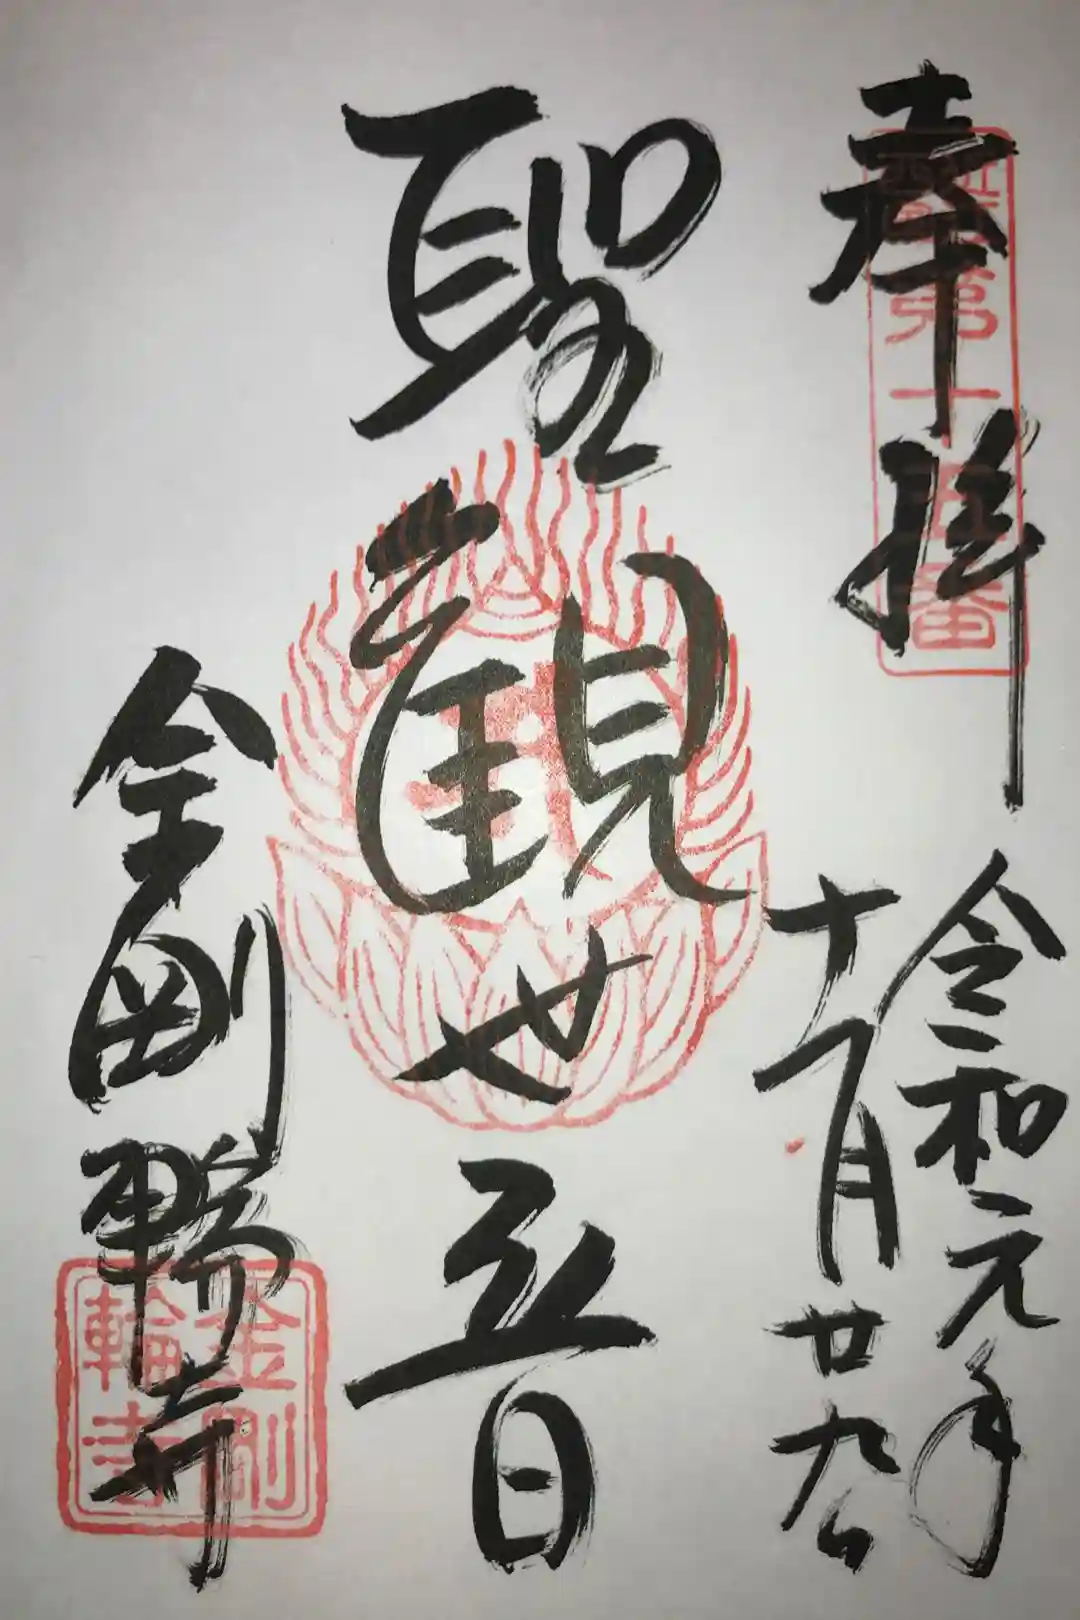 奉拝
令和元年
十一月廿九日
聖観世音
金剛輪寺
第十五番
金剛
輪寺